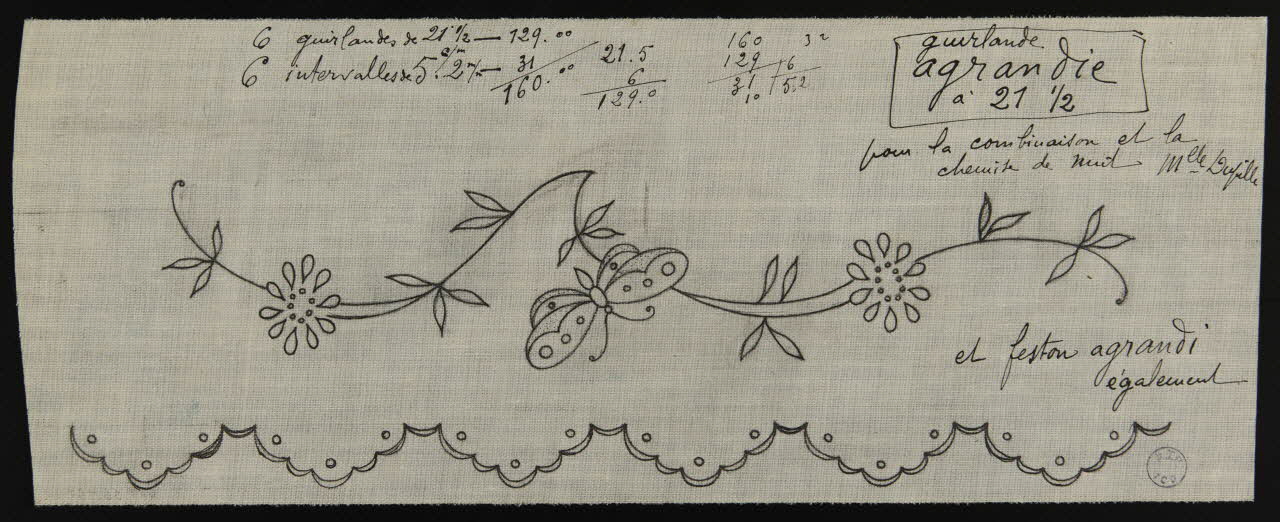 6 guirlandes de 21 1/2 — 129.00
6 intervalles de 5 c/m 2 m/m — 31
160.00
21.5
6
129.0
160
129 16
31 5.2
10
32
guirlande
agrandie
à 21 1/2
pour la combinaison et la
chemise de nuit Mlle
et feston agrandi
également